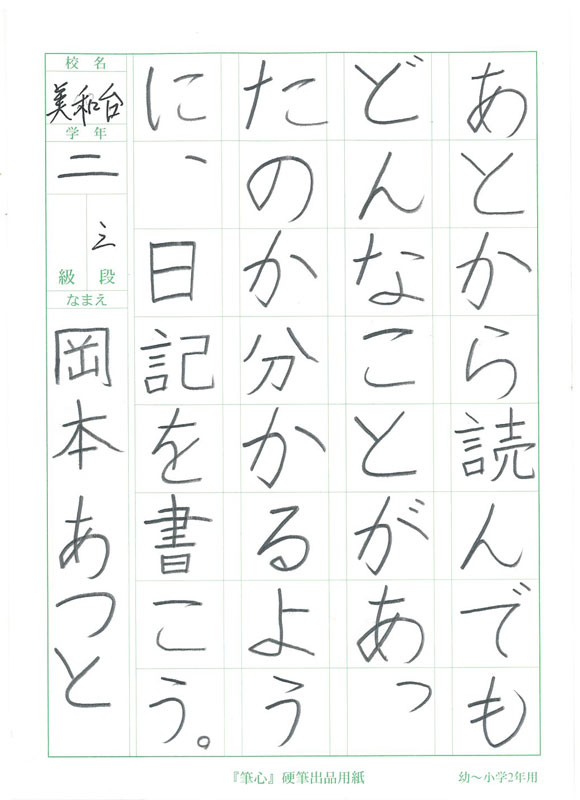 あとから読んでも
どんなことがあっ
たのか分かるよう
に、日記を書こう。
校名
美和台
学年
二
級 三段
なまえ
岡本あつと
『筆心』硬筆出品用紙
幼〜小学2年用